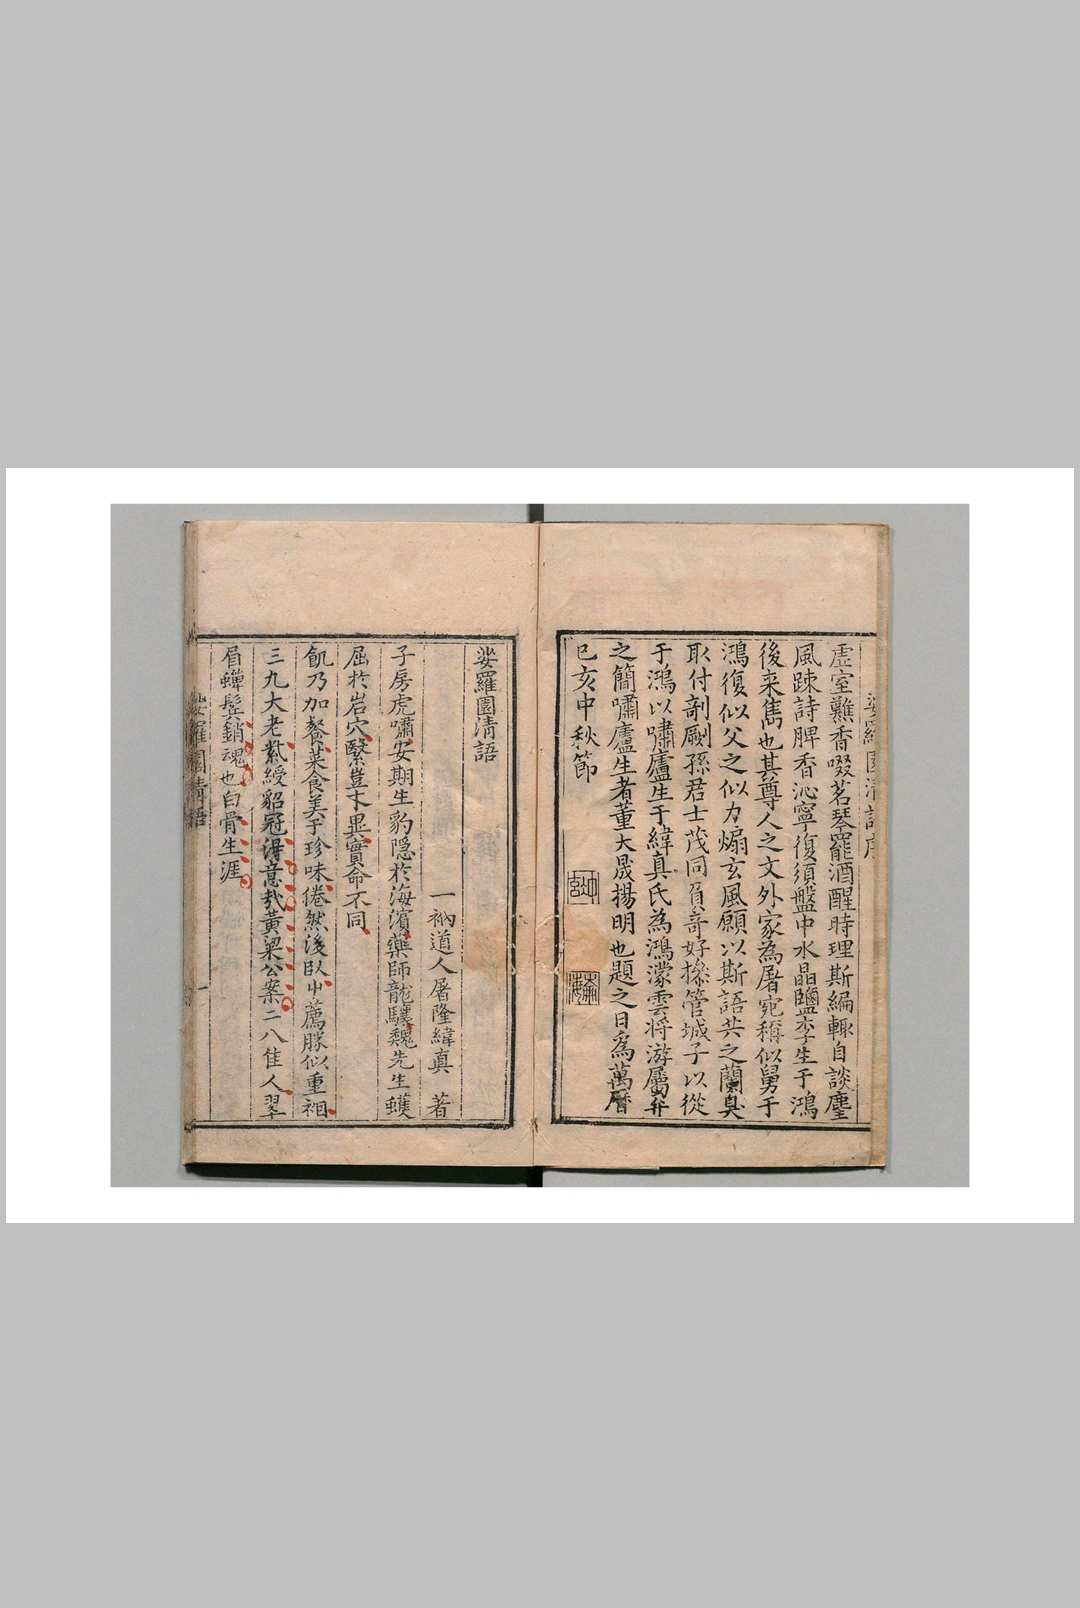 虛室爇香啜茗琴罷酒醒時理斯編輒自談麈
風疎詩脾香沁寧復須盤中水晶鹽李生于鴻
後来雋也其尊人之文外家為屠宛稱似舅于
鴻復似父之似力煽玄風願以斯語共之蘭臭
取付剞劂孫君士茂同負奇好操管城子以從
于鴻以嘯廬生于緯真氏為鴻濛雲将游屬弁
之簡嘯廬生者董大晟揚明也題之日為萬曆
己亥中秋節
娑羅園清語
一衲道人屠隆緯真 著
子房虎嘯安期生豹隱於海濱藥師龍驤魏先生蠖
屈於岩穴豎豈才異實命不同
飢乃加餐菜食美于珍味倦然後臥屮薦勝似重裀
三九大老紫綬貂冠得意哉黃粱公案二八佳人翠
眉蟬髩銷魂也白骨生涯
娑羅園清語
一